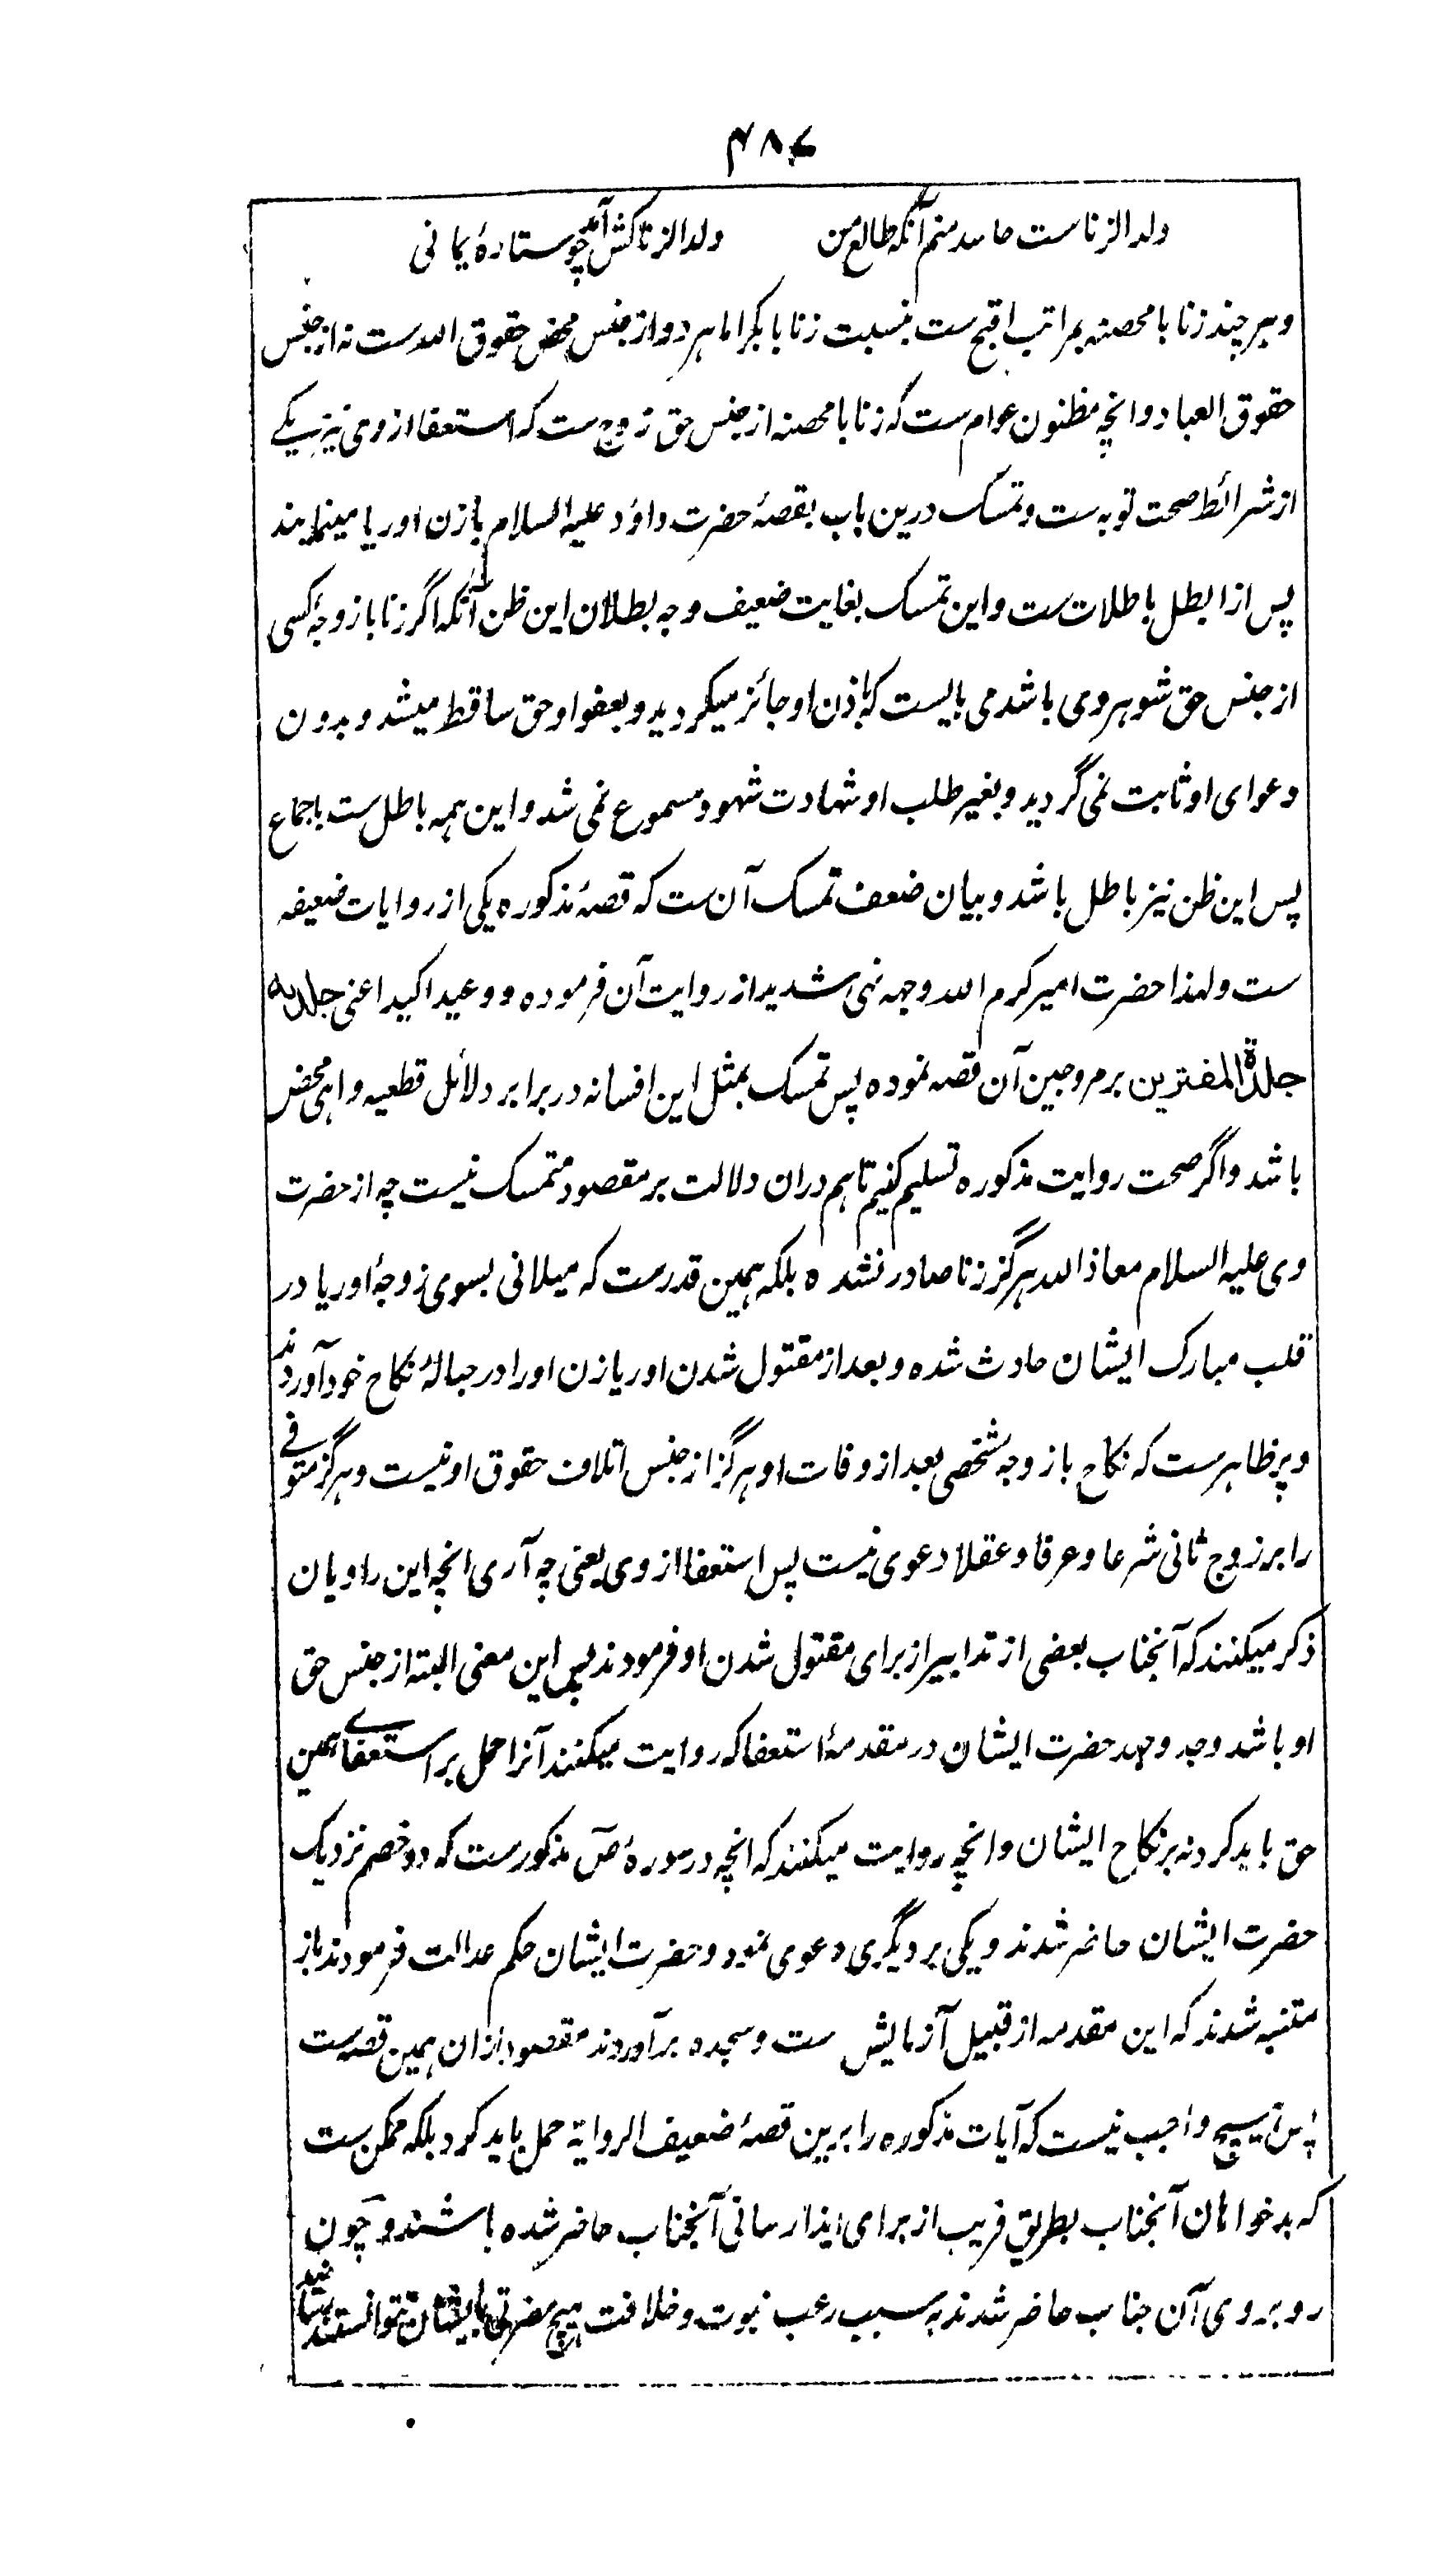 ۴۸۷
ولد الزناست حاسد منم آنکه طالع من ولد الزنا کش آمد چو ستارهٔ یمانی
و هرچند زنا با محصنه بمراتب اقبح ست بنسبت زنا با بکر اما هر دو از جنس محض حقوق الله ست نه از جنس
حقوق العباد و انچه مظنون عوام ست که زنا با محصنه از جنس حق زوج ست که استعفا از وی نیز یکے
از شرائط صحت توبه ست و تمسک درین باب بقصهٔ حضرت داؤد علیه السلام با زن اوریا مینمایند
پس از ابطل باطلات ست و این تمسک بغایت ضعیف وجه بطلان این ظن آنکه اگر زنا با زوجهٔ کسی
از جنس حق شوهر وی باشد می بایست که باذن او جائز میگردید و بعفو او حق ساقط میشد و بدون
دعوای او ثابت نمی گردید و بغیر طلب او شهادت شهود مسموع نمی شد و این همه باطل ست باجماع
پس این ظن نیز باطل باشد و بیان ضعف تمسک آن ست که قصهٔ مذکوره یکی از روایات ضعیفه
ست ولهذا حضرت امیر کرم الله وجهه نهی شدید از روایت آن فرموده و وعید اکید اعنی جلدته
جلدة المفترین بر مروجین آن قصه نموده پس تمسک بمثل این افسانه در برابر دلائل قطعیه واهی محض
باشد و اگر صحت روایت مذکوره تسلیم کنیم تاهم دران دلالت بر مقصود متمسک نیست چه از حضرت
وی علیه السلام معاذ الله هرگز زنا صادر نشده بلکه همین قدرست که میلانی بسوی زوجهٔ اوریا در
قلب مبارک ایشان حادث شده و بعد از مقتول شدن اوریا زن او را در حبالهٔ نکاح خود آوردند
و پر ظاهرست که نکاح با زوجه شخصی بعد از وفات او هرگز از جنس اتلاف حقوق او نیست و هرگز متوفے
را بر زوج ثانی شرعا و عرفا و عقلا دعوی نیست پس استعفا از وی یعنی چه آری انچه این راویان
ذکر میکنند که آنجناب بعضی از تدابیر از برای مقتول شدن او فرمودند پس این معنی البته از جنس حق
او باشد و جد و جهد حضرت ایشان در مقدمهٔ استعفا که روایت میکنند آنرا حمل بر استعفاے همین
حق باید کرد نه بر نکاح ایشان و انچه روایت میکنند که انچه در سورهٔ صٓ مذکورست که دو خصم نزدیک
حضرت ایشان حاضر شدند و یکی بر دیگری دعوی نمود و حضرت ایشان حکم عدالت فرمودند باز
متنبه شدند که این مقدمه از قبیل آزمایش ست و سجده برآوردند مقصود ازان همین قصه ست
پس هیچ واجب نیست که آیات مذکوره را برین قصهٔ ضعیف الروایة حمل باید کرد بلکه ممکن ست
که بدخواهان آنجناب بطریق فریب از برای ایذا رسانی آنجناب حاضر شده باشند و چون
روبروی آن جناب حاضر شدند به سبب رعب نبوت و خلافت هیچ مضرتی بایشان نتوانستند